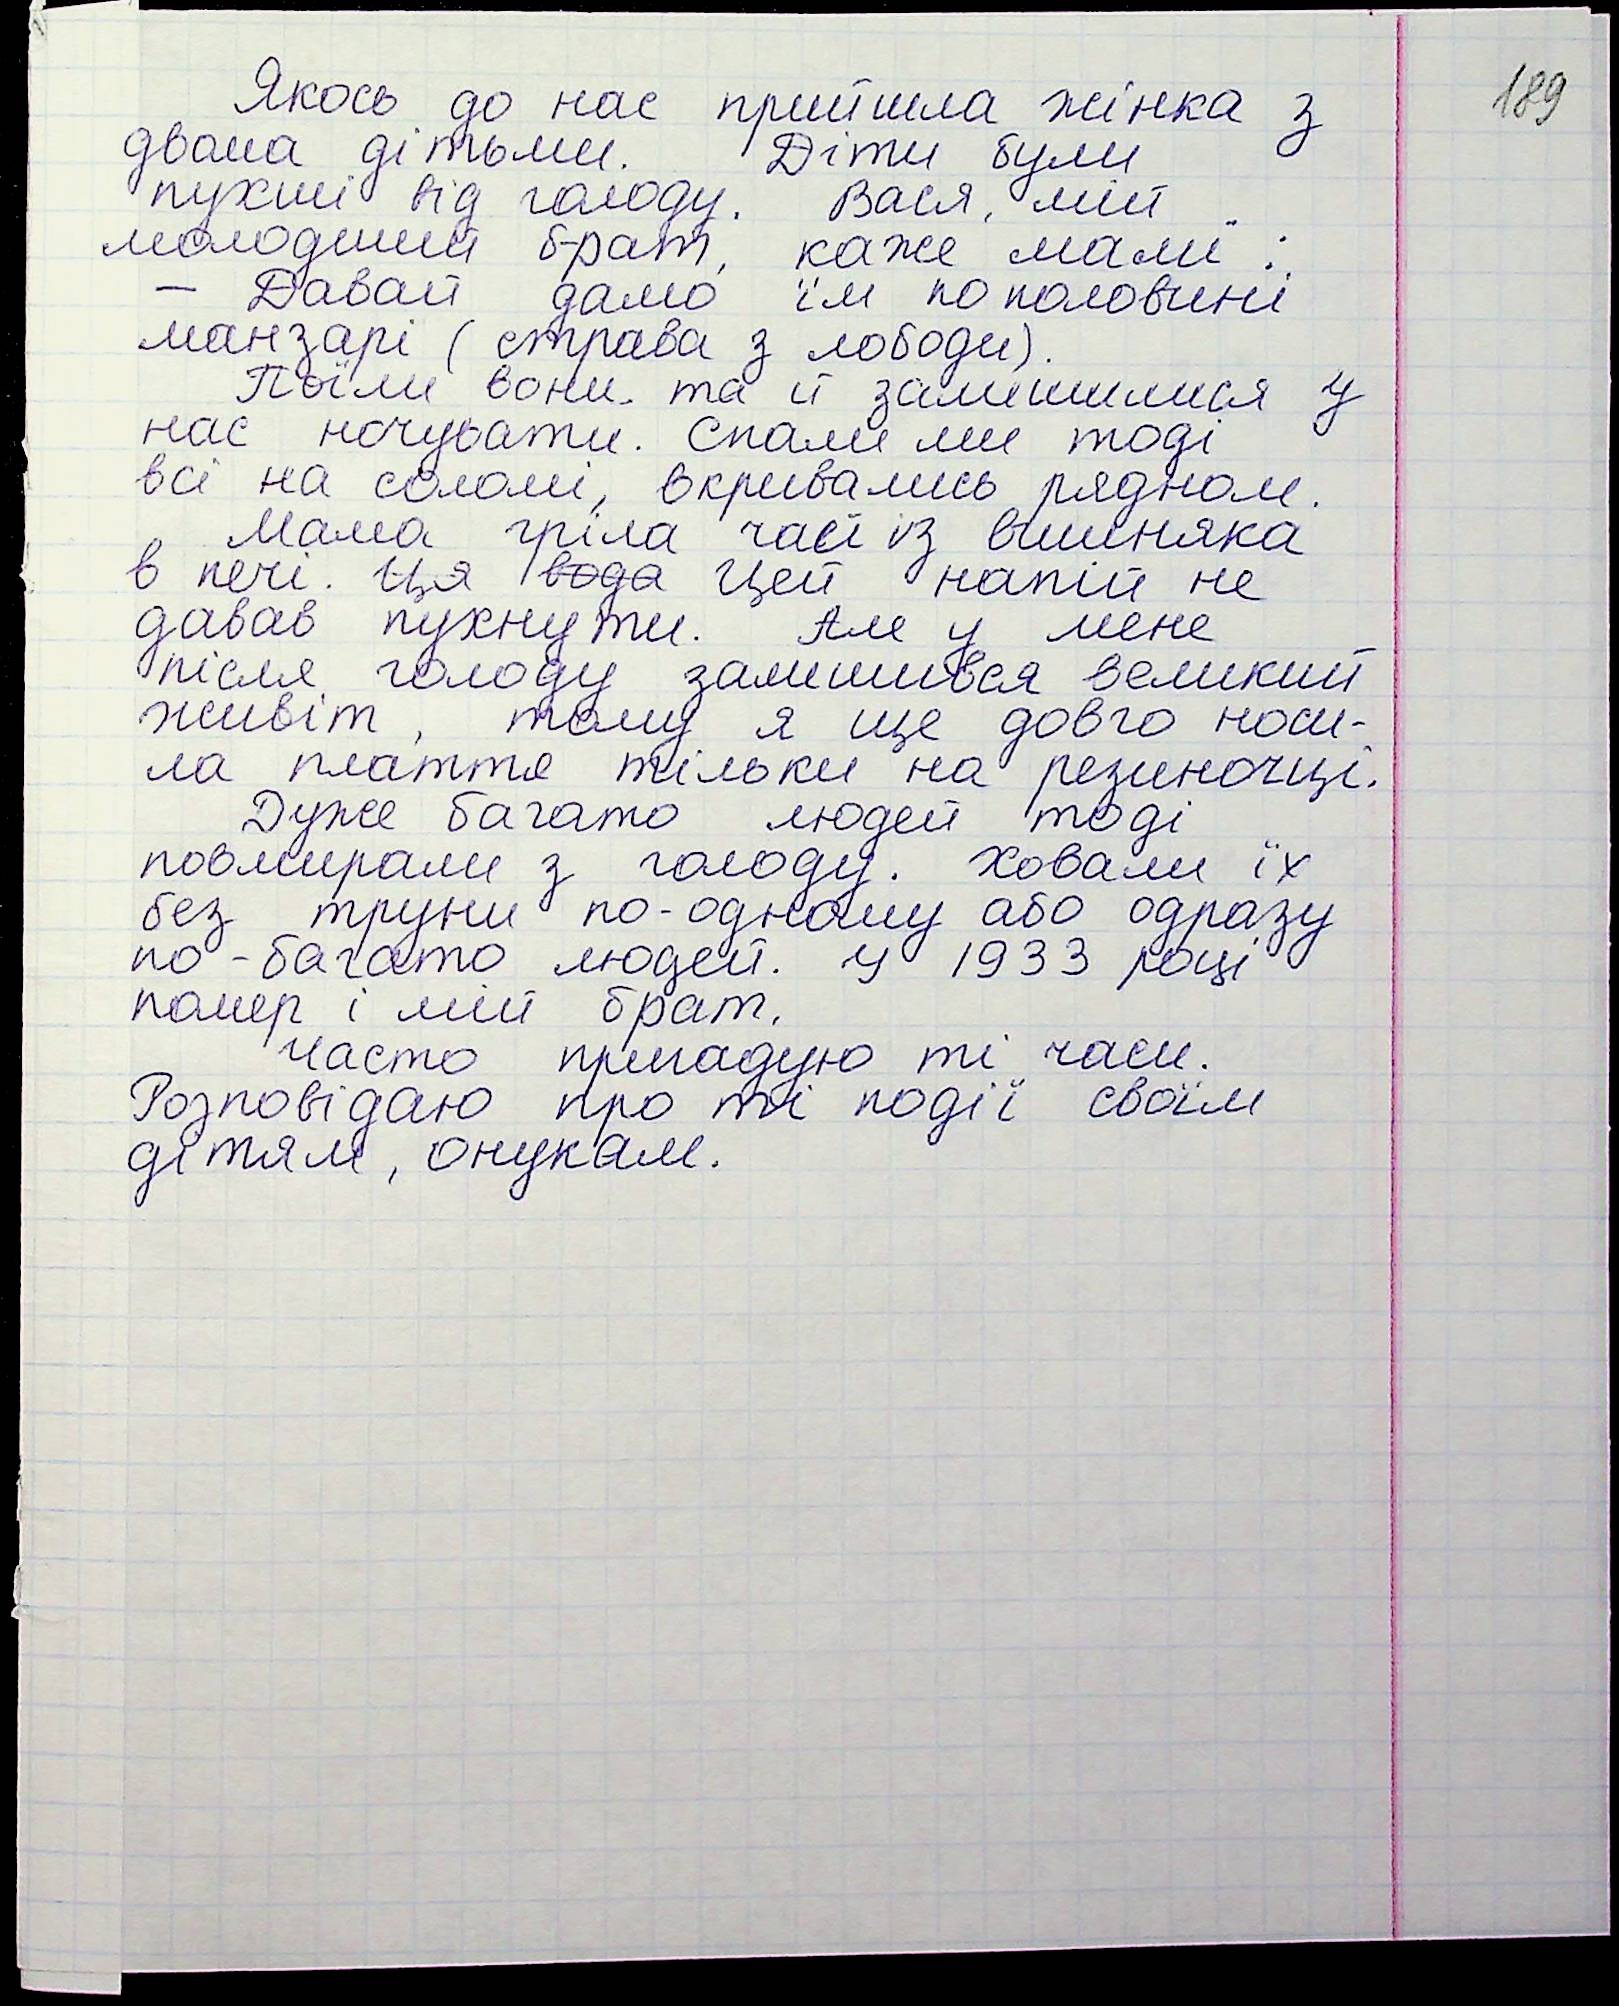 189
Якось до нас прийшла жінка з
двома дітьми. Діти були
пухлі від голоду. Вася, мій
молодший брат, каже мамі:
— Давай дамо їм по половині
манзарі (страва з лободи).
Поїли вони та й залишилися у
нас ночувати. Спали ми тоді
всі на соломі, вкривались рядном.
Мама гріла чай із вишняка
в печі. Ця вода Цей напій не
давав пухнути. Але у мене
після голоду залишився великий
живіт, тому я ще довго носи-
ла плаття тільки на резиночці.
Дуже багато людей тоді
повмирали з голоду. Ховали їх
без труни по-одному або одразу
по-багато людей. У 1933 році
помер і мій брат.
Часто пригадую ті часи.
Розповідаю про ті події своїм
дітям, онукам.